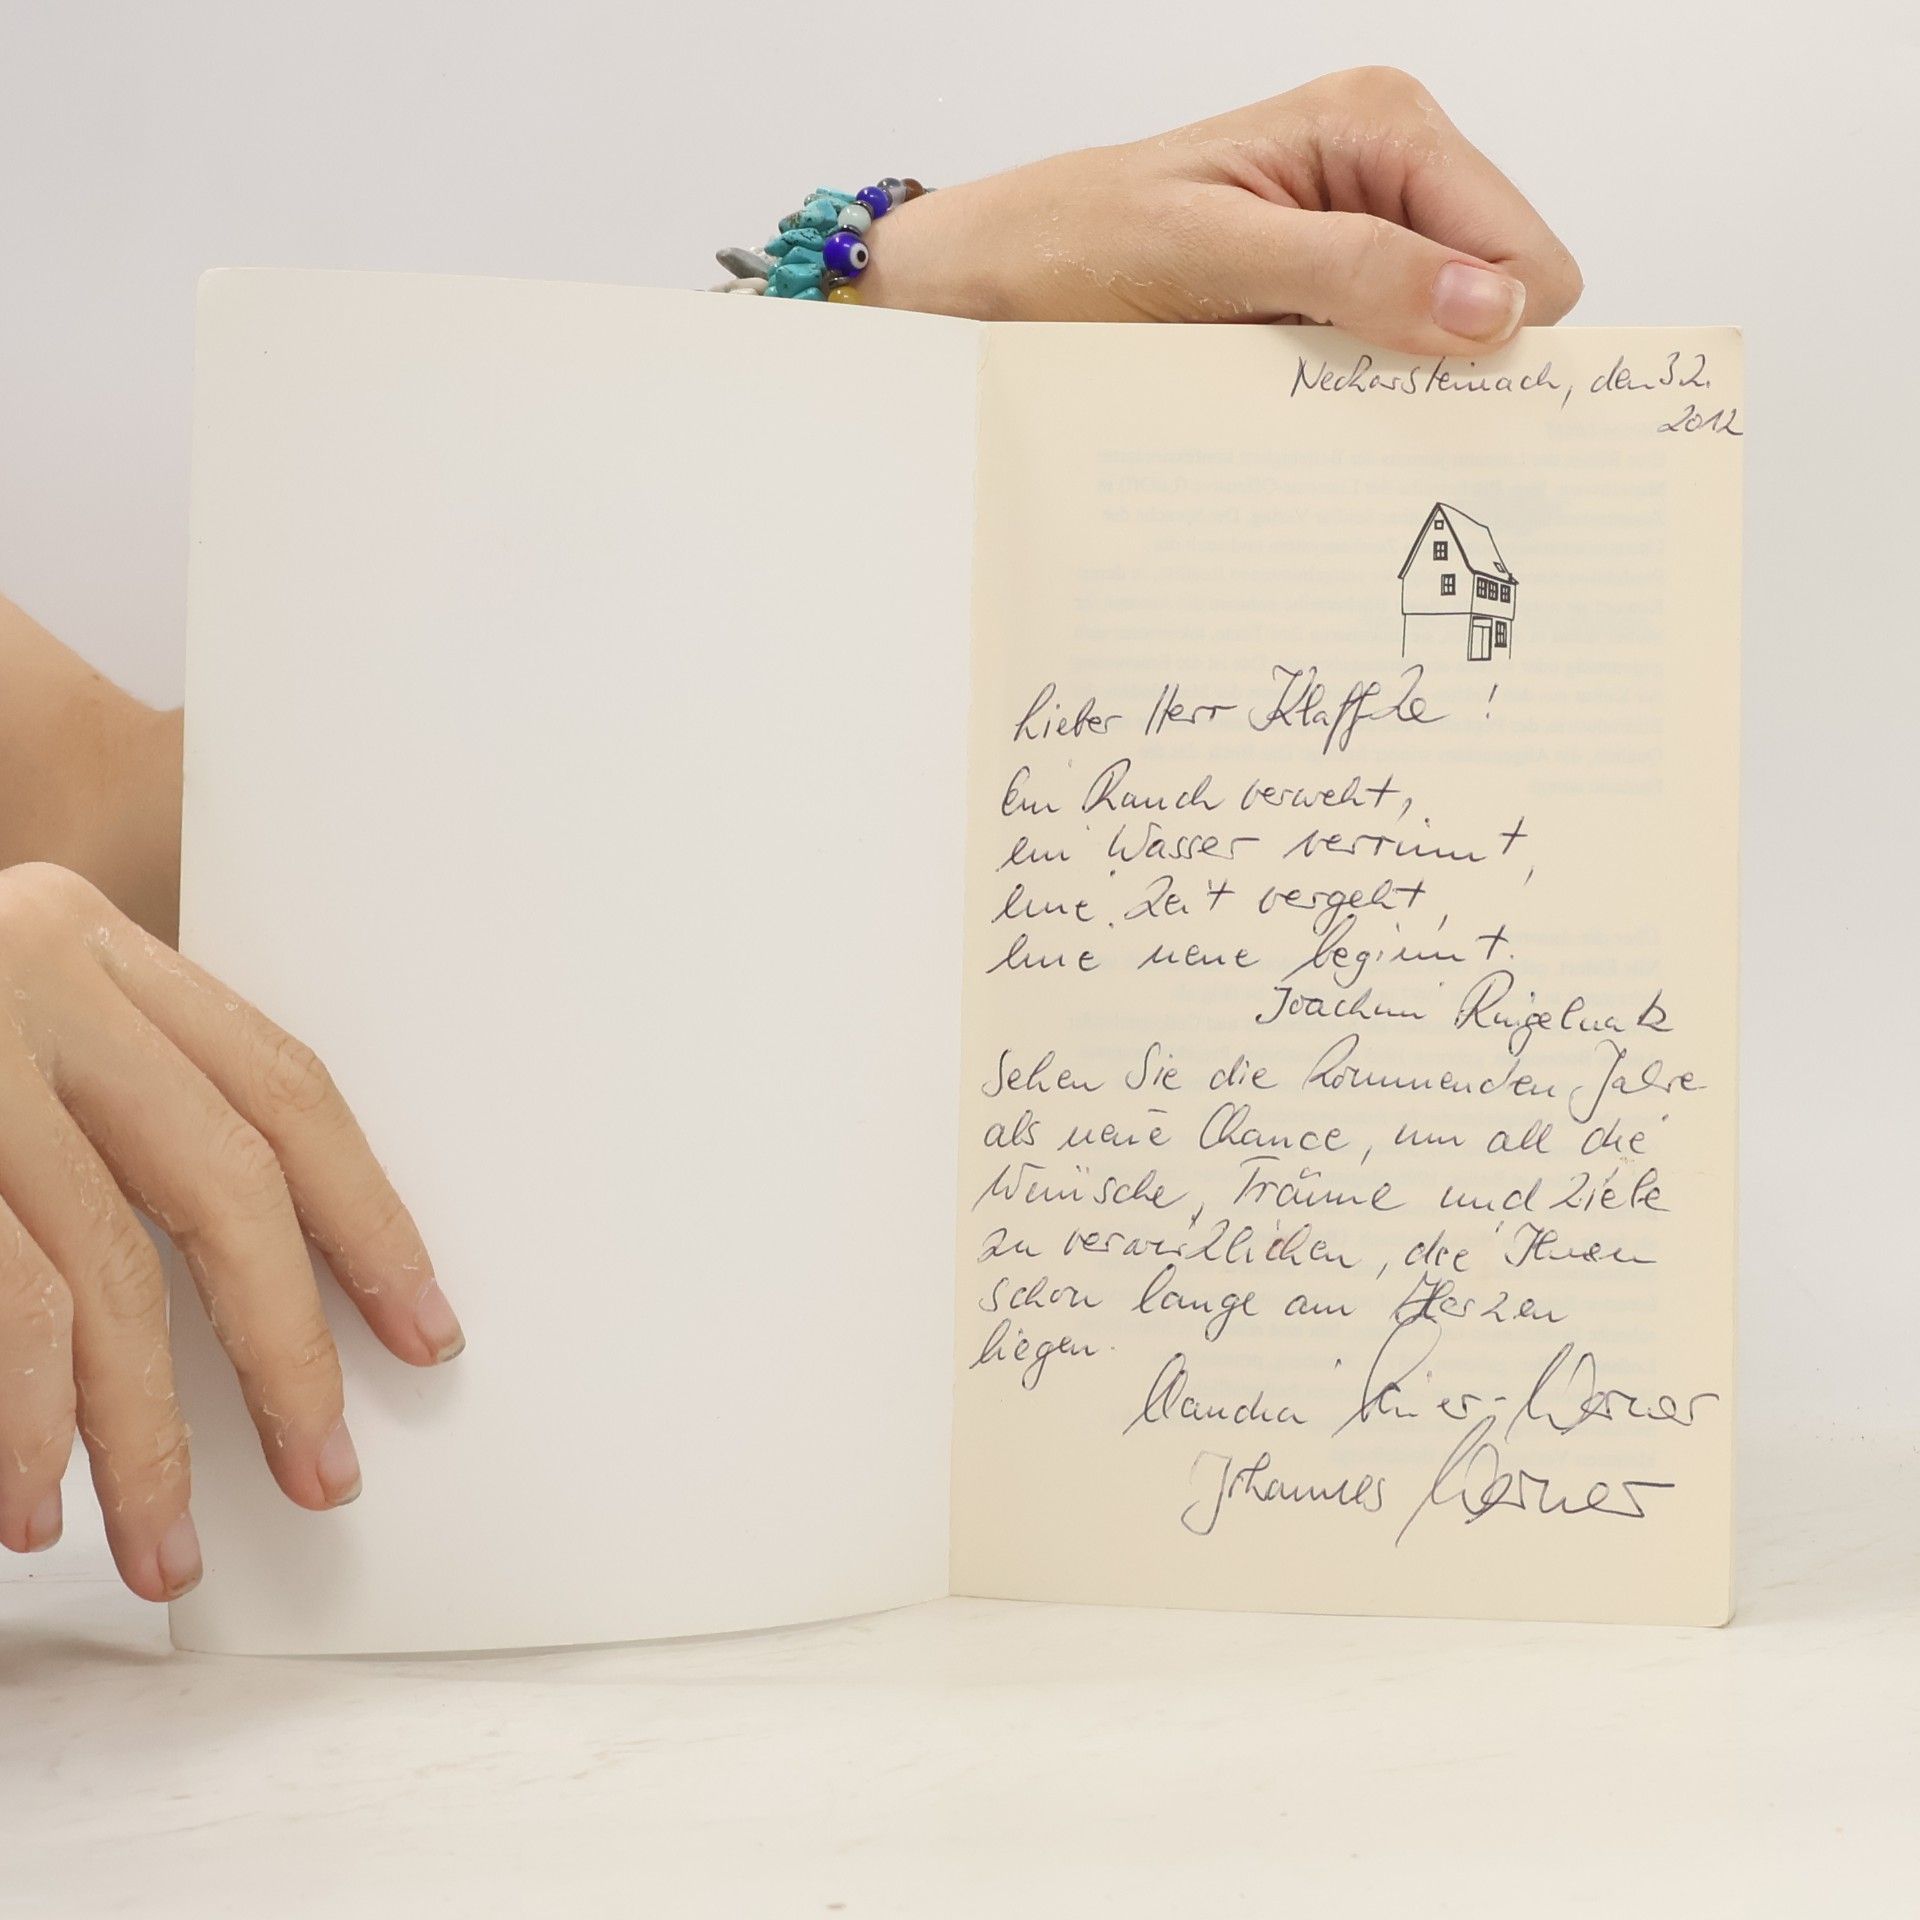 Neckarsteinach, den 3.2.
2012
Lieber Herr Klaffke!
Ein Rauch verweht,
ein Wasser verrinnt,
Eine Zeit vergeht,
Eine neue beginnt.
Joachim Ringelnatz
Sehen Sie die kommenden Jahre
als neue Chance, um all die
Wünsche, Träume und Ziele
zu verwirklichen, die Ihnen
schon lange am Herzen
liegen.
Claudia Werner
Johannes Werner